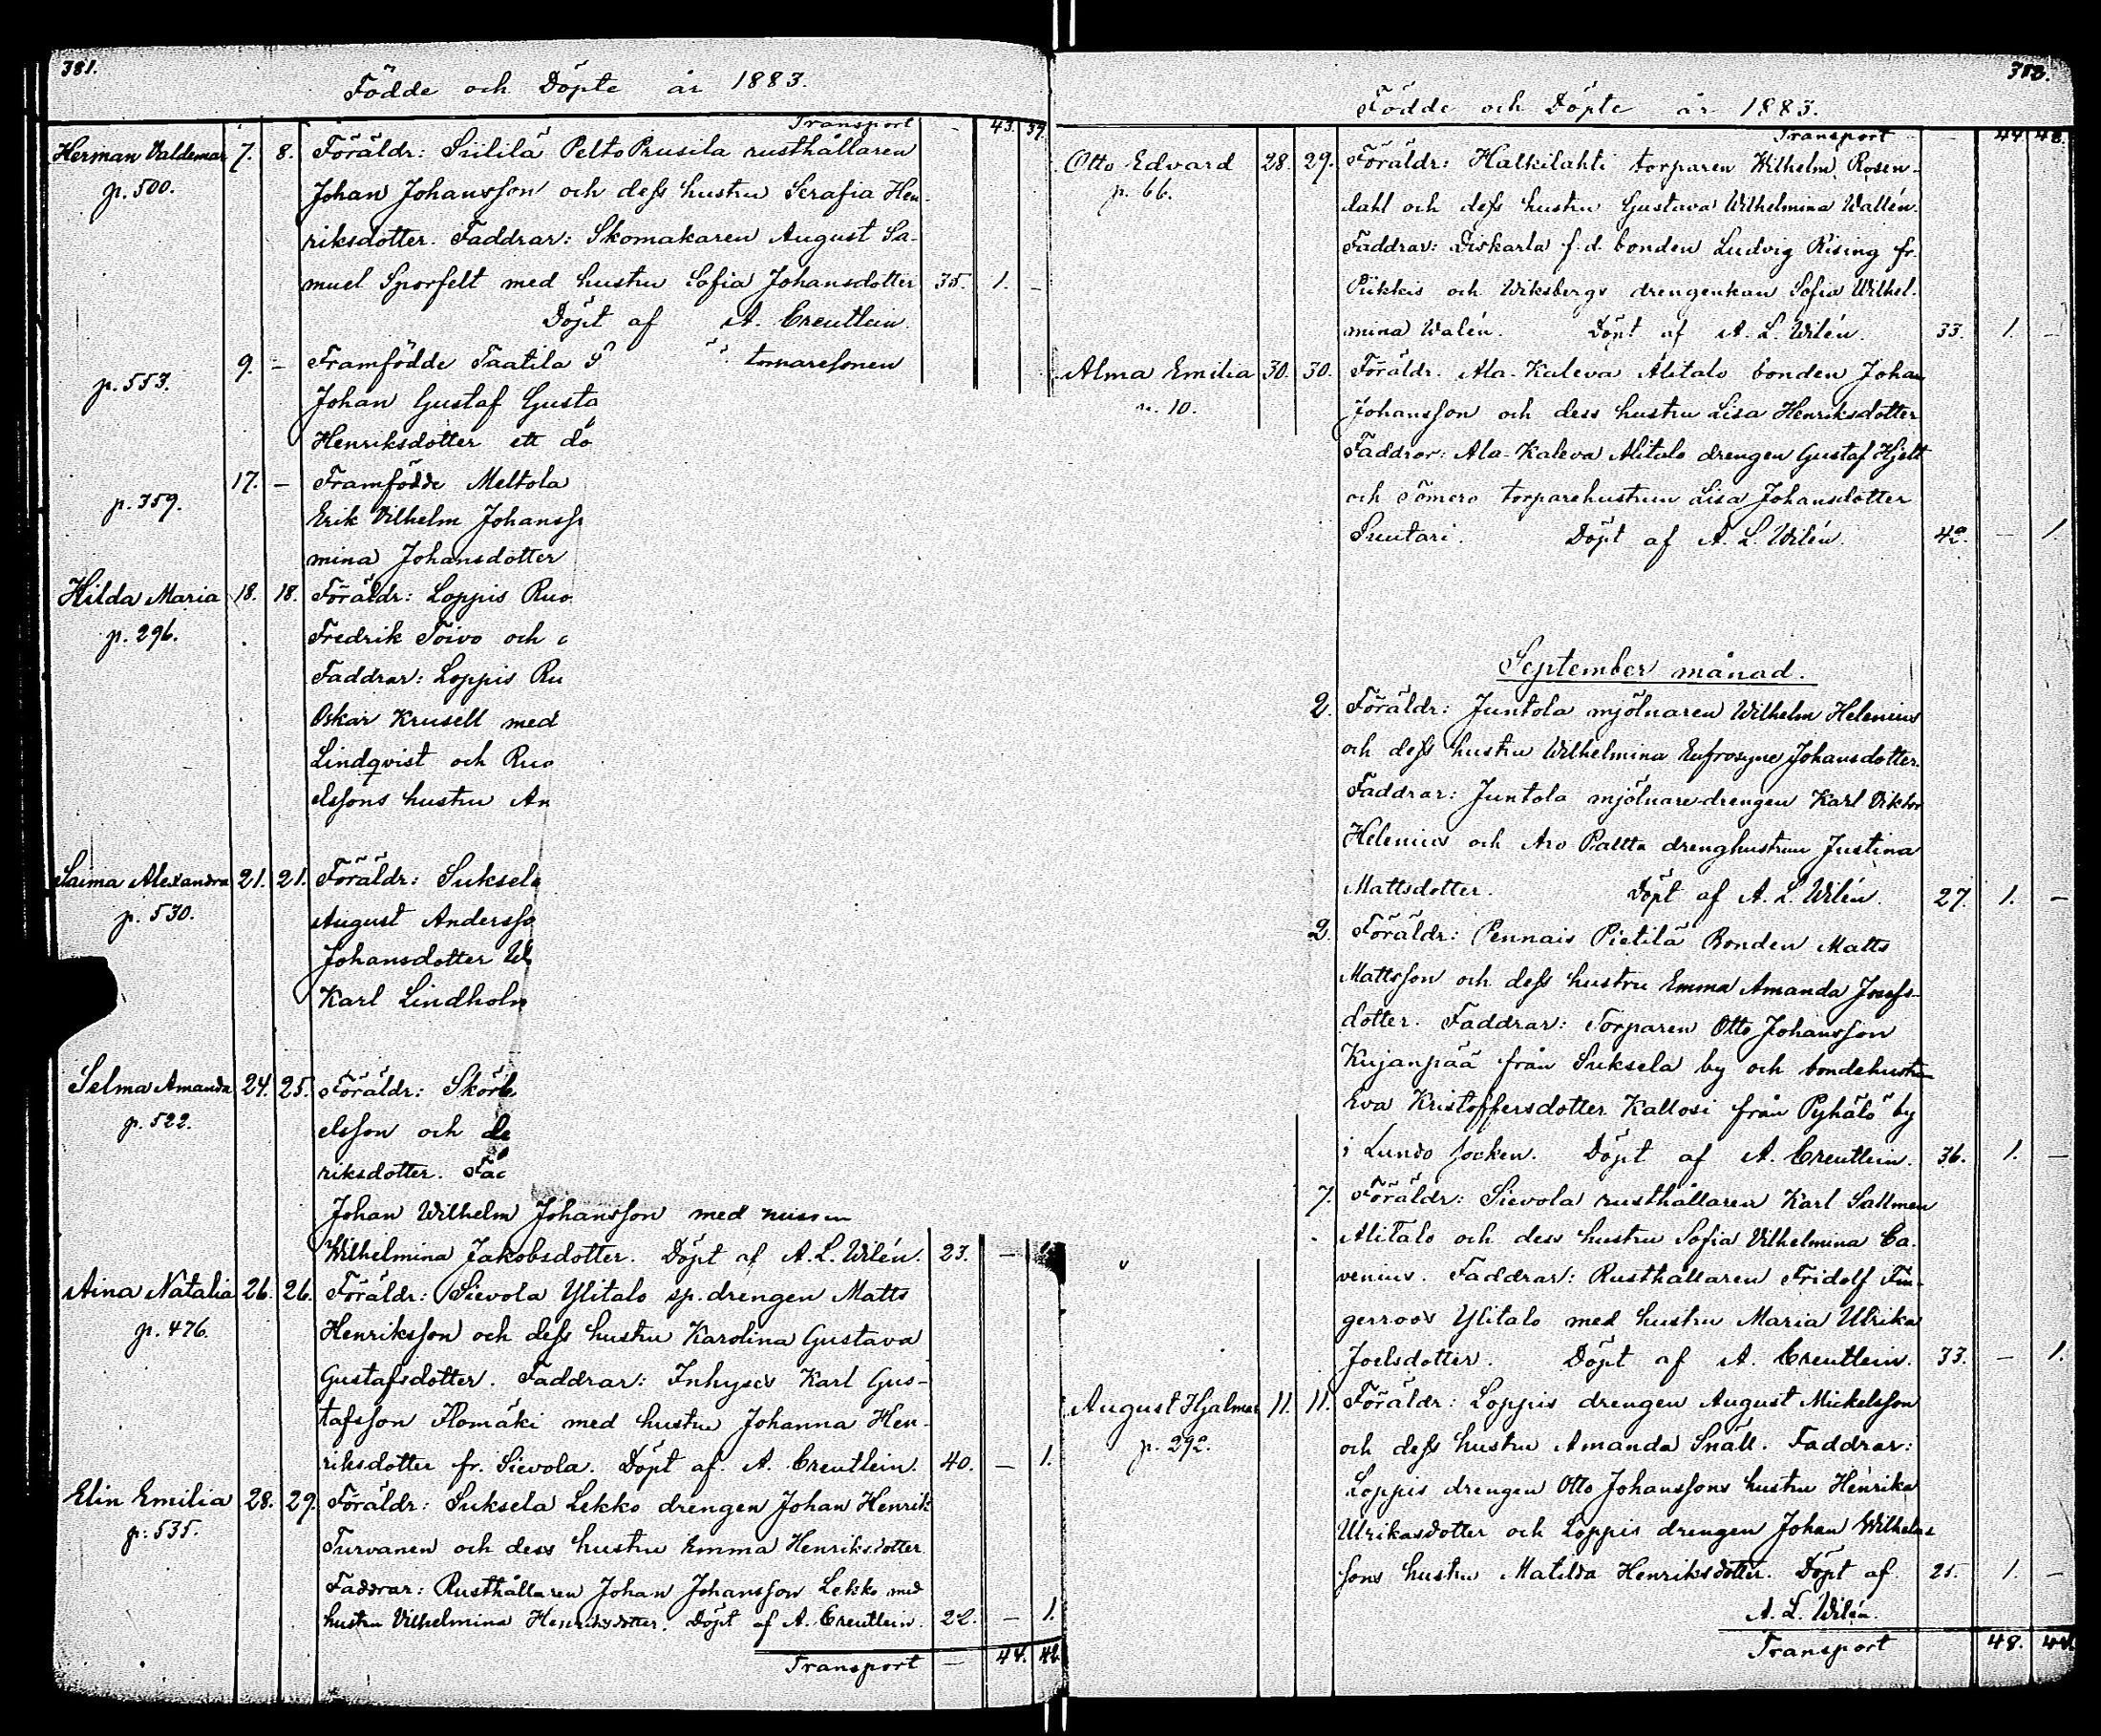 381.
Födde och Döpte år 1883.
Transport 43. 39.
Herman Valdemar 7. 8. Föräldr: Siililä Pelto Prusila rusthållaren
p. 500. Johan Johansson och dess hustru Serafia Hen-
riksdotter. Faddrar: Skomakaren August Sa-
muel Sporfelt med hustru Sofia Johansdotter 35. 1. –
Döpt af A. Creutlein.
9. – Framfödde Taatila tomaresonen
p. 553. Johan Gustaf Gusta
Henriksdotter ett dö
17. – Framfödde Meltola
p. 359. Erik Vilhelm Johanss
mina Johansdotter
Hilda Maria 18. 18. Föräldr: Loppis Ruo
p. 296. Fredrik Toivo och
Faddrar: Loppis Ru
Oskar Krusell med
Lindqvist och Ruo
elssons hustru An
Saima Alexandra 21. 21. Föräldr: Suksela
p. 530. August Andersso
Johansdotter W
Karl Lindholm
Selma Amanda 24. 25. Föräldr: Skörb
p. 522. elsson och de
riksdotter. Fad
Johan Wilhelm Johansson med
Wilhelmina Jakobsdotter. Döpt af A. L. Wilén. 23. –
Aina Natalia 26. 26. Föräldr: Sievola Ylitalo sp. drengen Matts
p. 476. Henriksson och dess hustru Karolina Gustava
Gustafsdotter. Faddrar: Inhyses Karl Gus-
tafsson Ilomäki med hustru Johanna Hen-
riksdotter fr. Sievola. Döpt af. A. Creutlein. 40. – 1.
Elin Emilia 28. 29. Föräldr: Suksela Lekko drengen Johan Henrik
p. 535. Turvanen och dess hustru Emma Henriksdotter
Faddrar: Rusthållaren Johan Johansson Lekko med
hustru Vilhelmina Henriksdotter. Döpt af A. Creutlein. 22. – 1.
Transport – 44.
Födde och Döpte år 1883.
Transport 44
Otto Edvard 28. 29. Föräldr: Halkilahti torparen Wilhelm Rosen-
p. 66. dahl och dess hustru Gustava Wilhelmina Wallén.
Faddrar: Diskarla f. d. bonden Ludvig Rising fr.
Piikkis och Wiksbergs drengenkan Sofia Wilhel-
mina Walén. Döpt af A. L. Wilén. 33. 1. –
Alma Emilia 30. 30. Föräldr. Ala-Kaleva Alitalo bonden Johan
10. Johansson och dess hustru Lisa Henriksdotter
Faddrar: Ala-Kaleva Alitalo drengen Gustaf Hjelt
och Tömero torparehustrun Lisa Johansdotter
Suutari. Döpt af A. L. Wilén. 42. – 1
September månad.
2. Föräldr: Juntola mjölnaren Wilhelm Helenius
och dess hustru Wilhelmina Eufrosyne Johansdotter.
Faddrar: Juntola mjölnaredrengen Karl Viktor
Helenius och Aro Paltta drenghustrun Justina
Mattsdotter. Döpt af A. L. Wilén. 27. 1. –
2. Föräldr: Pennais Pietilä Bonden Matts
Mattsson och dess hustru Emma Amanda Josefs-
dotter. Faddrar: Torparen Otto Johansson
Kujanpää från Suksela by och bondehustru
Eva Kristoffersdotter Kallosi från Pyhältö by
i Lundo socken. Döpt af A. Creutlein. 36. 1. –
7. Föräldr: Sievola rusthållaren Karl Sallmen
Alitalo och dess hustru Sofia Vilhelmina Ca-
venius. Faddrar: Rusthållaren Fridolf Fin-
gerroos Ylitalo med hustru Maria Ulrika
Joelsdotter. Döpt af A. Creutlein. 33. – 1.
August Hjalmar 11. 11. Föräldr: Loppis drengen August Mickelsson
p. 292. och dess hustru Amanda Snäll. Faddrar:
Loppis drengen Otto Johanssons hustru Henrika
Ulrikasdotter och Loppis drengen Johan Wilhelms
sons hustru Matilda Henriksdotter. Döpt af 25. 1. –
A. L. Wilén.
Transport 48.